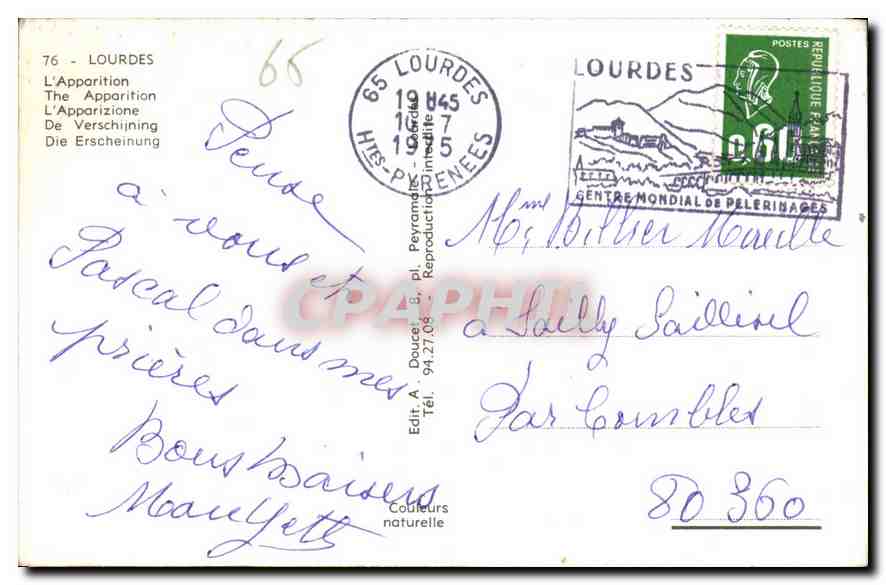 76 - LOURDES
L'Apparition
The Apparition
L'Apparizione
De Verschijning
Die Erscheinung
66
Pense
à vous et
Pascal dans mes
prières
Bons baisers
Edit. A. Doucet - 8, pl. Peyramale - Lourdes
Tél. 94.27.08 - Reproduction interdite
Couleurs
naturelle
65 LOURDES
HTES-PYRENEES
LOURDES
CENTRE MONDIAL DE PELERINAGES
POSTES
REPUBLIQUE FRANCAISE
0,60
Mme Billier Mareille
à Sailly Saillisel
Par Combles
80360
CPAPHIL